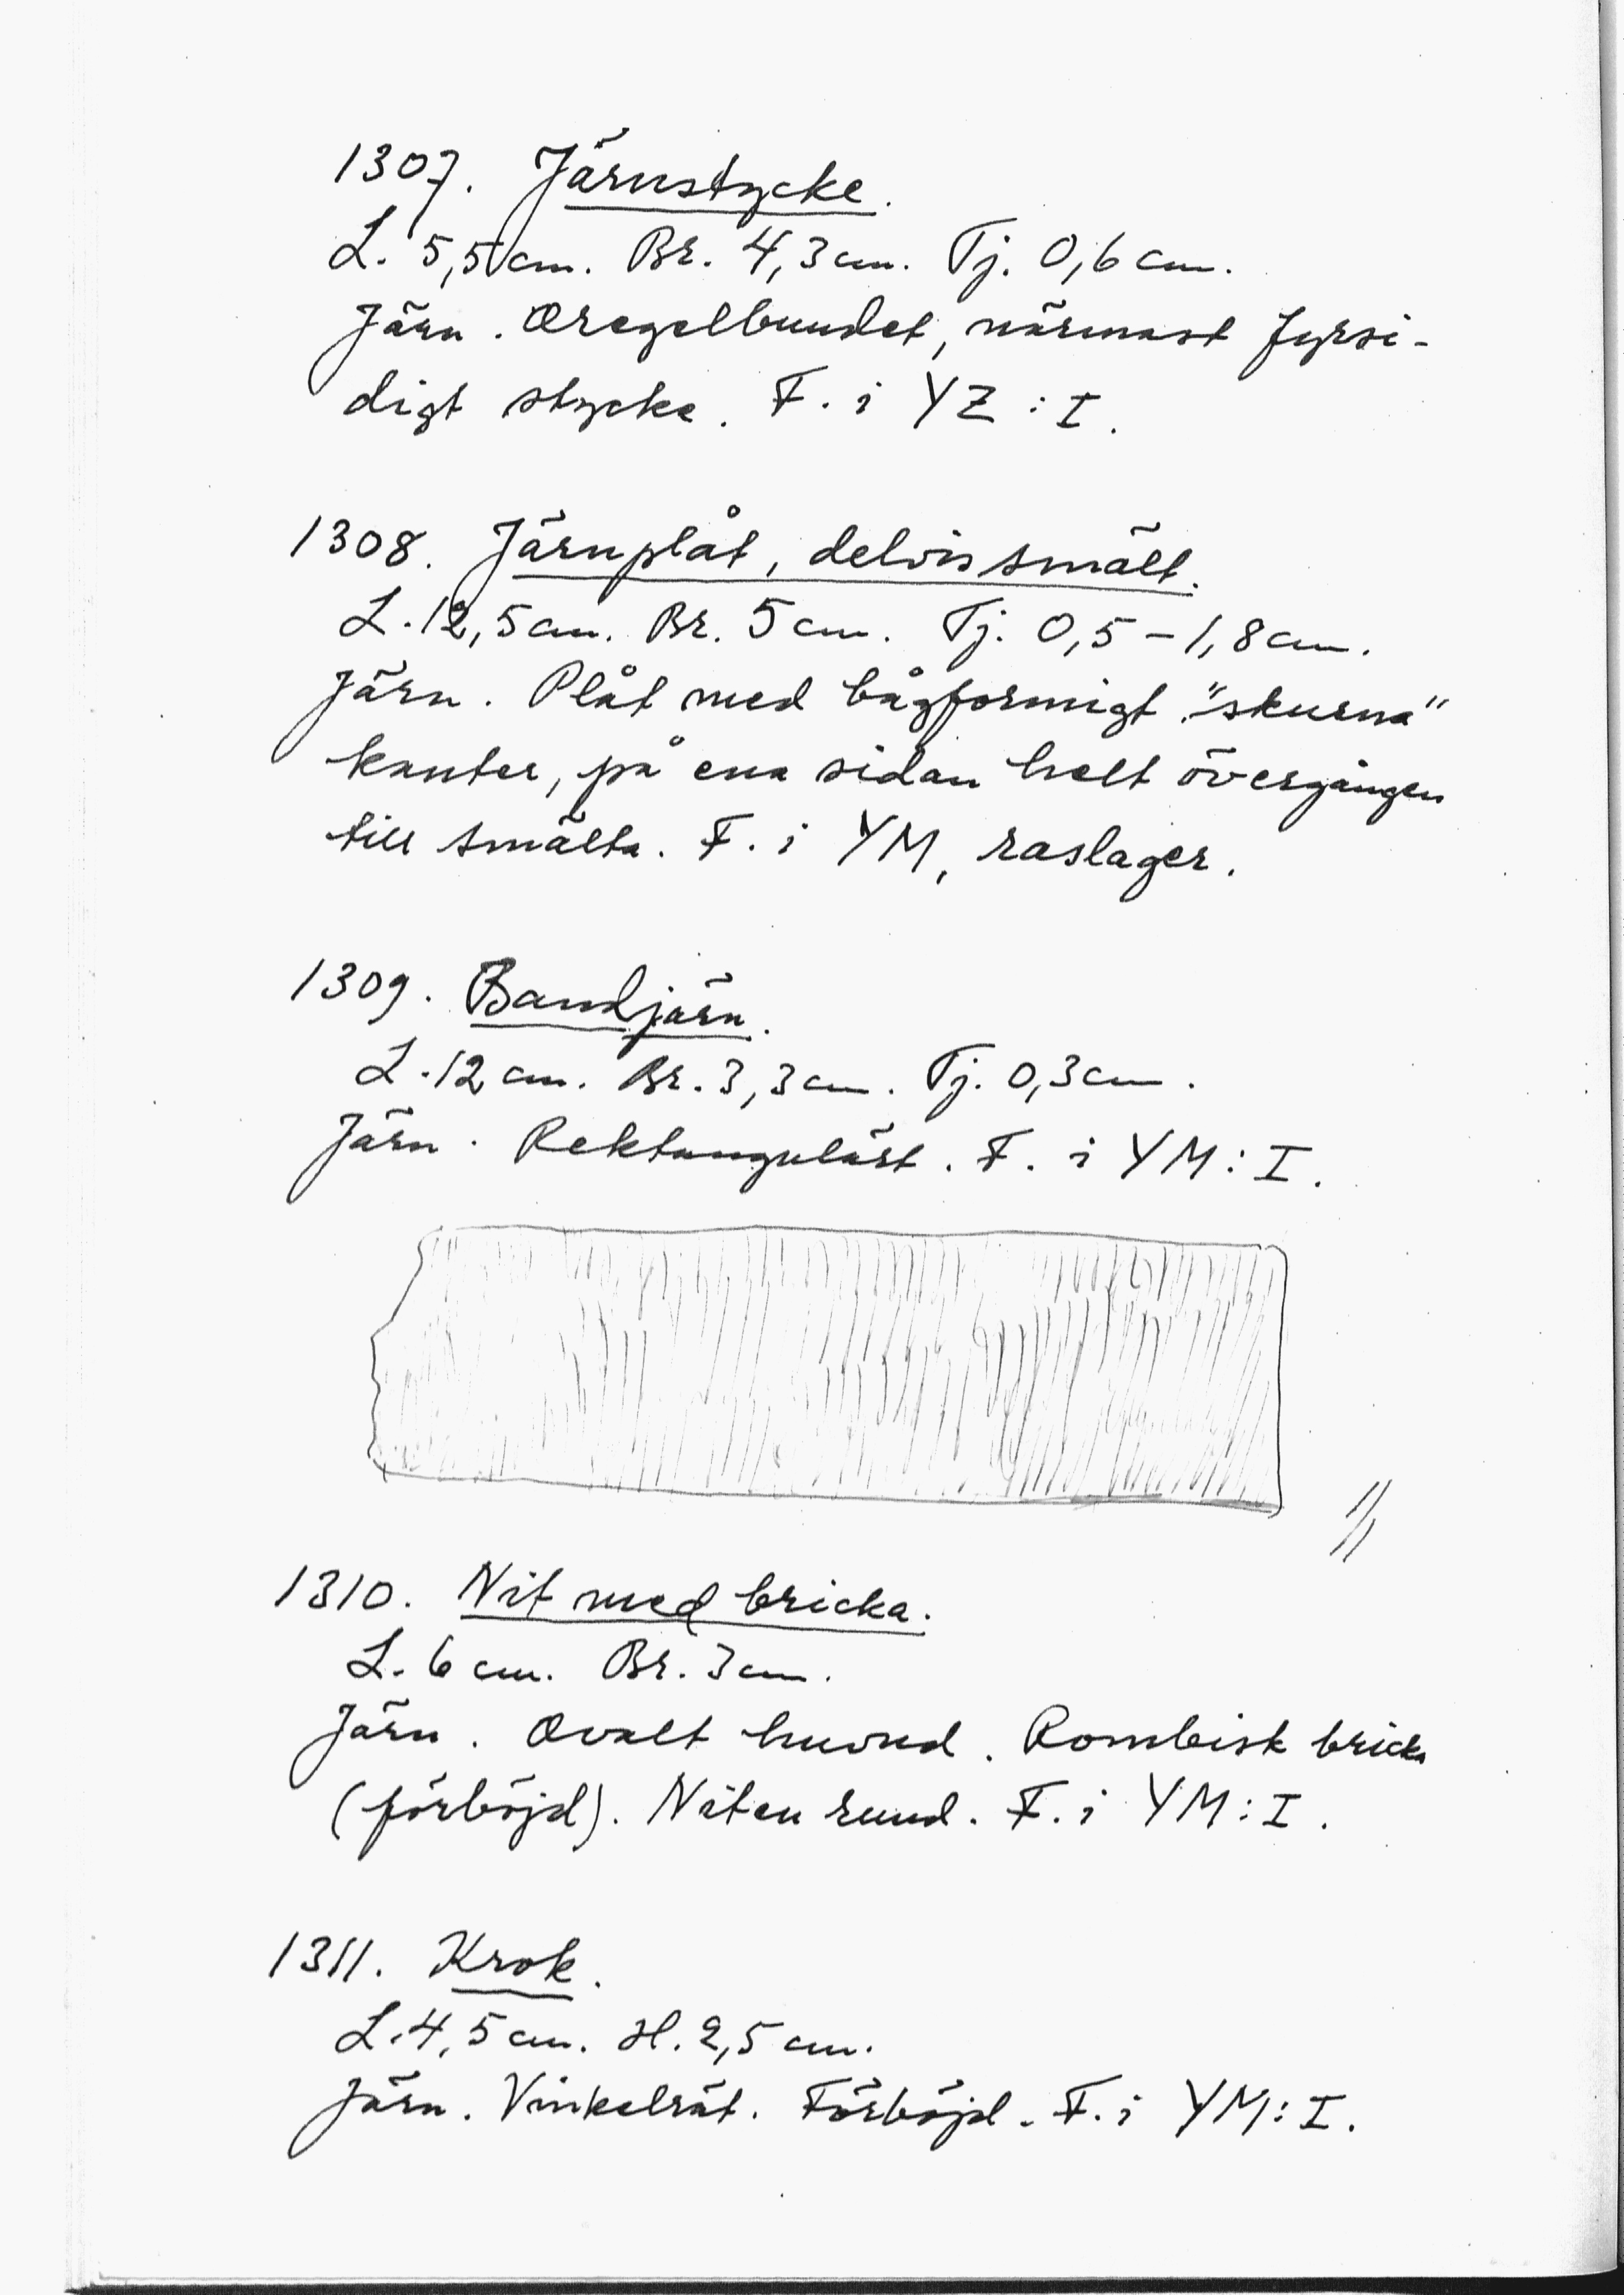 1307. Järnstycke.
L. 5,5 cm. Br. 4,3 cm. Tj. 0,6 cm.
Järn. Oregelbundet, närmast fyrsi-
digt stycke. F. i YZ : I.
1308. Järnplåt, delvis smält.
L. 12,5 cm. Br. 5 cm. Tj. 0,5 - 1,8 cm.
Järn. Plåt med bågformigt "skurna"
kanter, på ena sidan helt övergången
till smälta. F. i YM, raslager.
1309. Bandjärn.
L. 12 cm. Br. 3,3 cm. Tj. 0,3 cm.
Järn. Rektangulärt. F. i YM : I.
1/1
1310. Nit med bricka.
L. 6 cm. Br. 3 cm.
Järn. Ovalt huvud. Rombisk bricka
(förböjd). Niten rund. F. i YM : I.
1311. Krok.
L. 4,5 cm. H. 2,5 cm.
Järn. Vinkelrät. Förböjd. F. i YM : I.